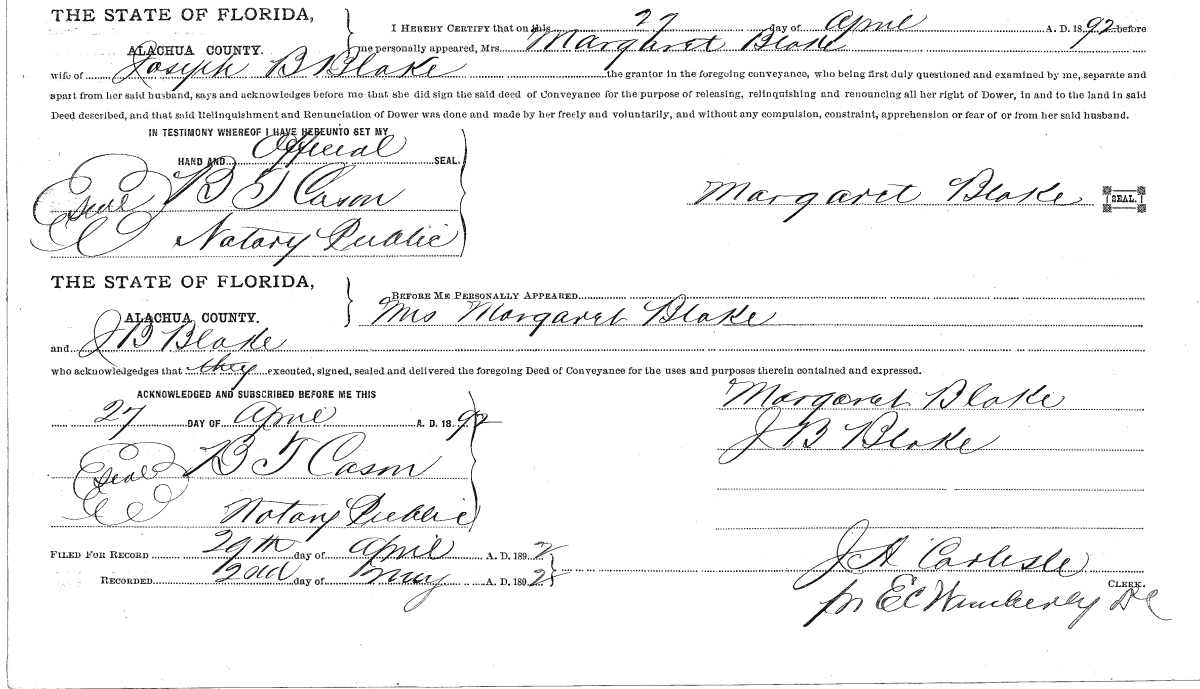 THE STATE OF FLORIDA,
ALACHUA COUNTY.
I HEREBY CERTIFY that on this 27 day of April A. D. 1892 before
me personally appeared, Mrs. Margaret Blake
wife of Joseph B Blake the grantor in the foregoing conveyance, who being first duly questioned and examined by me, separate and
apart from her said husband, says and acknowledges before me that she did sign the said deed of Conveyance for the purpose of releasing, relinquishing and renouncing all her right of Dower, in and to the land in said
Deed described, and that said Relinquishment and Renunciation of Dower was done and made by her freely and voluntarily, and without any compulsion, constraint, apprehension or fear of or from her said husband.
IN TESTIMONY WHEREOF I HAVE HEREUNTO SET MY
HAND AND Official SEAL.
Seal B T Cason
Notary Public
Margaret Blake SEAL.
THE STATE OF FLORIDA,
ALACHUA COUNTY.
BEFORE ME PERSONALLY APPEARED
Mrs Margaret Blake
and J B Blake
who acknowledges that they executed, signed, sealed and delivered the foregoing Deed of Conveyance for the uses and purposes therein contained and expressed.
ACKNOWLEDGED AND SUBSCRIBED BEFORE ME THIS
27 DAY OF April A. D. 18 92
Seal B T Cason
Notary Public
Margaret Blake
J B Blake
FILED FOR RECORD 29th day of April A. D. 1892
RECORDED 2nd day of May A. D. 1892
J H Carlisle
CLERK.
pr E C Wimberly DC